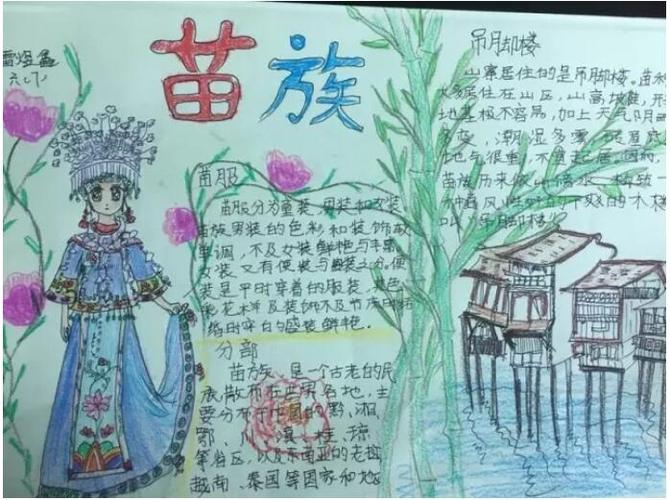 苗族
雷煜鑫
六(7)
苗服
苗服分为童装,男装和女装。
苗族男装的色彩和装饰较
单调,不及女装鲜艳与丰富。
女装又有便装与盛装之分。便
装是平时穿着的服装,其色
彩花样及装饰不及节庆时结
婚时穿的盛装鲜艳。
分部
苗族,是一个古老的民
族,散布在世界各地,主
要分布于中国的黔、湘、
鄂、川、滇、桂、琼
等省区,以及东南亚的老挝
越南、泰国等国家和地
吊月却楼
山寨居住的是吊脚楼。苗
大多居住在山区,山高坡陡,开
地基极不容易,加上天气阴雨
多变,潮湿多雾,
地气很重,不宜起居,因而,
苗族历来依山傍水
通风
叫“吊月却楼